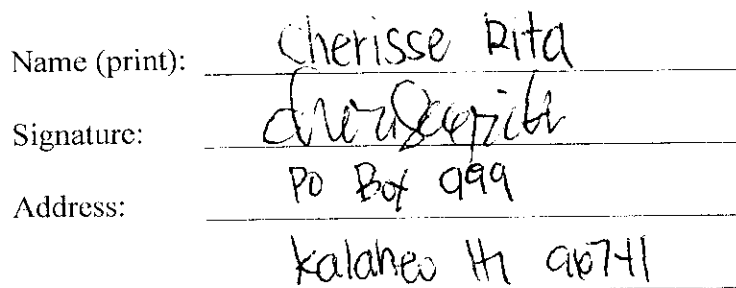 Name (print): Cherisse Rita
Signature: Cherisse Rita
Address: PO Box 999
Kalaheo HI 96741